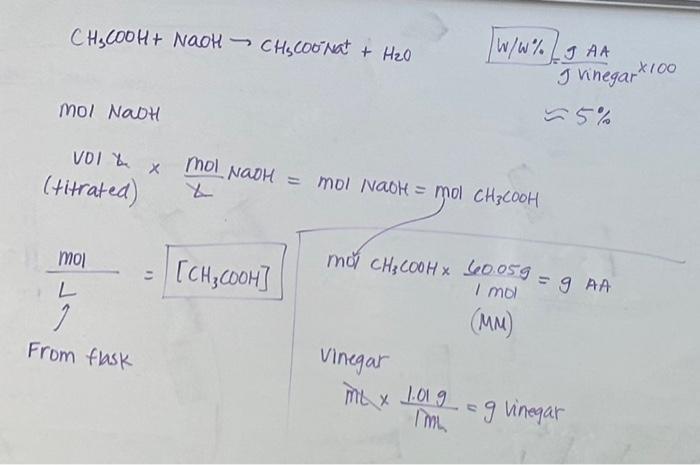 CH₃COOH + NaOH → CH₃COO⁻Na⁺ + H₂O
W/W% = g AA / g vinegar × 100
≈ 5%
mol NaOH
vol L × mol NaOH / L = mol NaOH = mol CH₃COOH
(titrated)
mol / L = [CH₃COOH]
From flask
mol CH₃COOH × 60.05g / 1 mol = g AA
(MM)
Vinegar
mL × 1.01 g / 1 mL = g vinegar